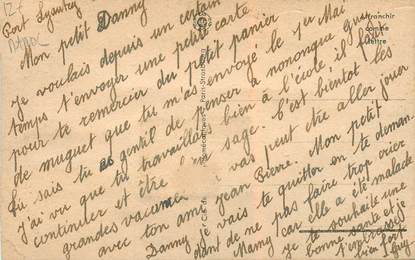 Port Lyautey
Mon petit Danny
je voulais depuis un certain
temps t'envoyer une petite carte
pour te remercier du petit panier
de muguet que tu m'as envoyé le 1er Mai
tu sais tu es gentil de penser à nononque Guy
J'ai vu que tu travaillais bien à l'école il faut
continuer et être sage. C'est bientôt les
grandes vacances vas peut être aller jouer
avec ton ami Jean Pierre. Mon petit
Danny je vais te quitter en te deman-
dant de ne pas faire trop crier
Mamy car elle a été malade
je te souhaite une
bonne santé et je
t'embrasse
bien fort
Guy
A franchir
comme
lettre